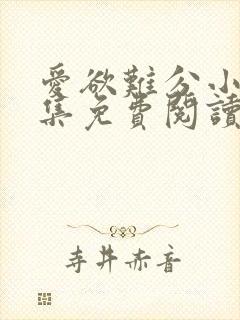 愛欲難分小
集免費閱讀
寺井赤音